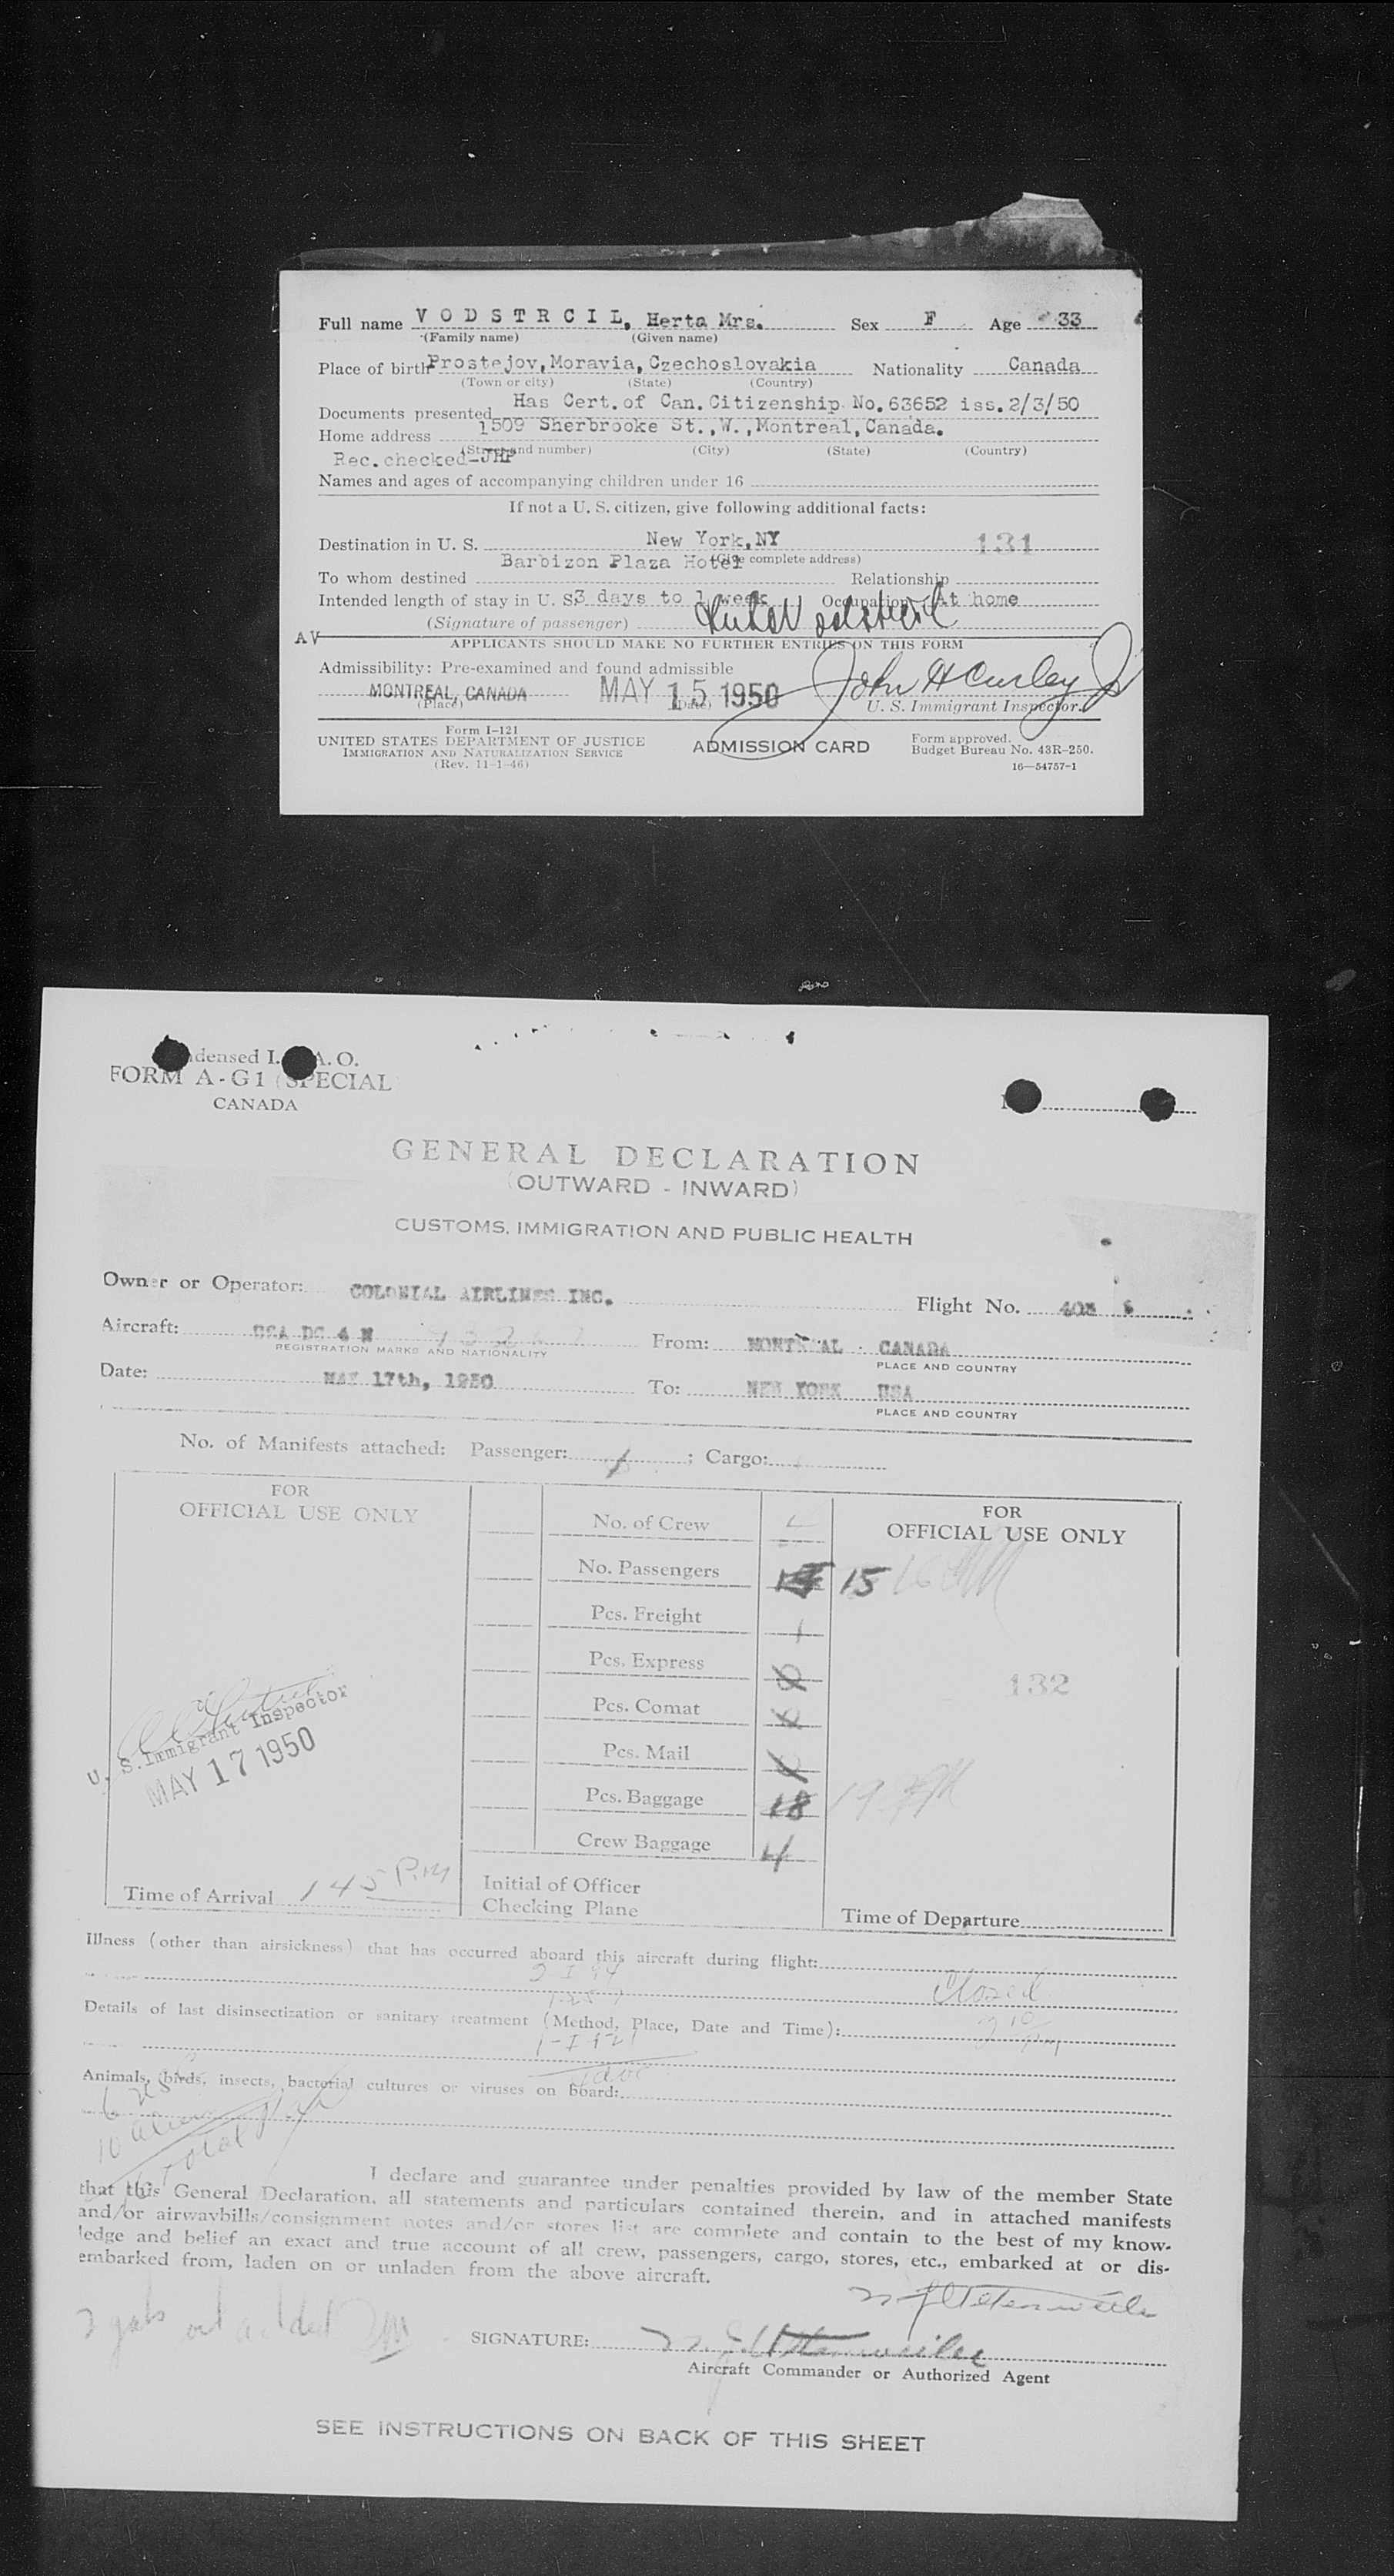 Full name VODSTRCIL, Herta Mrs. Sex F Age 33
(Family name) (Given name)
Place of birth Prostejov, Moravia, Czechoslovakia Nationality Canada
(Town or city) (State) (Country)
Documents presented Has Cert. of Can. Citizenship No. 63652 iss. 2/3/50
Home address 1509 Sherbrooke St., W., Montreal, Canada.
(Street and number) (City) (State) (Country)
Rec. checked-JHP
Names and ages of accompanying children under 16
If not a U. S. citizen, give following additional facts:
Destination in U. S. New York, NY 131
Barbizon Plaza Hotel (Give complete address)
To whom destined Relationship
Intended length of stay in U. S. 3 days to 1 week Occupation At home
(Signature of passenger)
AV APPLICANTS SHOULD MAKE NO FURTHER ENTRIES ON THIS FORM
Admissibility: Pre-examined and found admissible
MONTREAL, CANADA MAY 15 1950 John H Curley Jr
(Place) (Date) U. S. Immigrant Inspector.
Form I-121
UNITED STATES DEPARTMENT OF JUSTICE
IMMIGRATION AND NATURALIZATION SERVICE
(Rev. 11-1-46)
ADMISSION CARD
Form approved.
Budget Bureau No. 43R-250.
16—54757-1
densed I. A. O.
FORM A-G1 (SPECIAL
CANADA
GENERAL DECLARATION
(OUTWARD - INWARD)
CUSTOMS, IMMIGRATION AND PUBLIC HEALTH
Owner or Operator: COLONIAL AIRLINES INC. Flight No.
Aircraft: USA DC 4 N From: MONTREAL CANADA
REGISTRATION MARKS AND NATIONALITY PLACE AND COUNTRY
Date: MAY 17th, 1950 To: NEW YORK USA
PLACE AND COUNTRY
No. of Manifests attached: Passenger: 1 ; Cargo:
FOR
OFFICIAL USE ONLY
No. of Crew
No. Passengers 15
Pcs. Freight
Pcs. Express
Pcs. Comat
Pcs. Mail
Pcs. Baggage 18
Crew Baggage 4
FOR
OFFICIAL USE ONLY
132
U. S. Immigrant Inspector
MAY 17 1950
Time of Arrival 145 P.M
Initial of Officer
Checking Plane
Time of Departure
Illness (other than airsickness) that has occurred aboard this aircraft during flight:
Closed
Details of last disinsectization or sanitary treatment (Method, Place, Date and Time):
Animals, birds, insects, bacterial cultures or viruses on board:
I declare and guarantee under penalties provided by law of the member State
that this General Declaration, all statements and particulars contained therein, and in attached manifests
and/or airwaybills/consignment notes and/or stores list are complete and contain to the best of my know-
ledge and belief an exact and true account of all crew, passengers, cargo, stores, etc., embarked at or dis-
embarked from, laden on or unladen from the above aircraft.
SIGNATURE:
Aircraft Commander or Authorized Agent
SEE INSTRUCTIONS ON BACK OF THIS SHEET